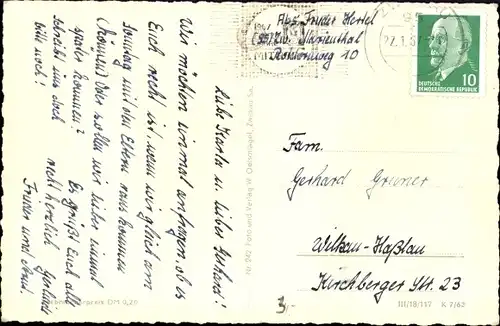 Abs. Frieder Hertel
95 Zw. Marienthal
Rottannweg 10
22.1.67
DEUTSCHE
DEMOKRATISCHE REPUBLIK
10
Liebe Herta u. lieber Gerhard!
Wir möchten einmal anfragen, ob es
Euch recht ist, wenn wir gleich am
Sonntag mit den Eltern raus kommen
(können) Oder sollen wir lieber einmal
später kommen?
Schreibt uns doch
bitte noch!
Es grüßt Euch alle
recht herzlich
Frieder und
Fam.
Gerhard Gruner
Wilkau-Haßlau
Kirchberger Str. 23
Foto und Verlag W. Gahmlagel, Zwickau
DM 0,20
3,-
III/18/117 K 7/62